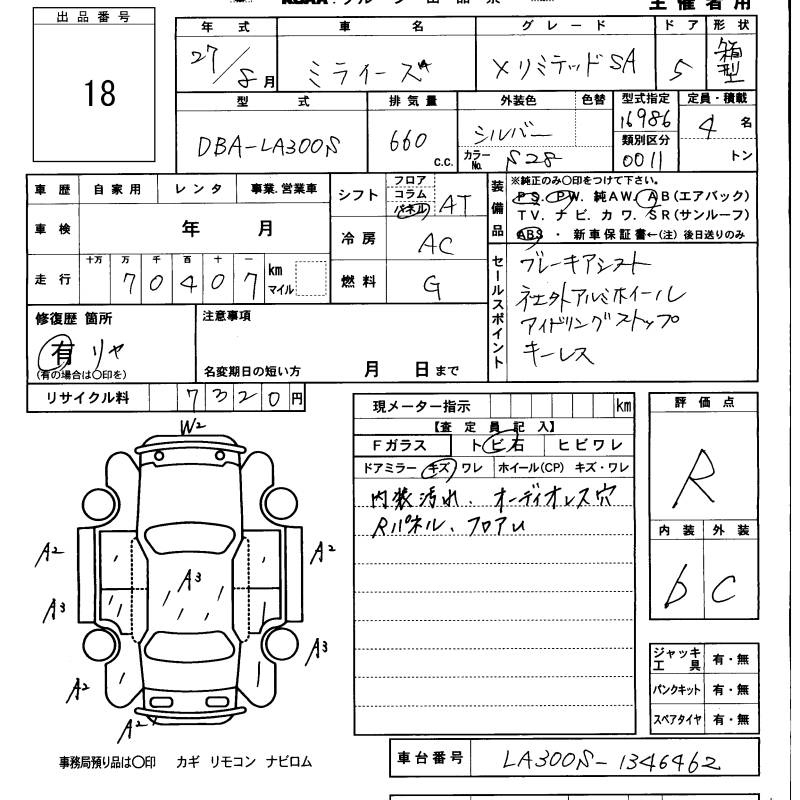 出品番号
18
主催者用
年式 車名 グレード ドア 形状
27/8月 ミライース Xリミテッド SA 5 箱型
型式 排気量 外装色 色替 型式指定 定員・積載
DBA-LA300S 660 c.c. シルバー 16986 4名
カラーNo. S28 類別区分 0011 トン
車歴 自家用 レンタ 事業.営業車
車検 年 月
走行 十万 万 千 百 十 一
7 0 4 0 7 km マイル
シフト フロア コラム パネル AT
冷房 AC
燃料 G
装備品
※純正のみ○印をつけて下さい。
PS. PW. 純AW. AB(エアバック)
TV. ナビ. カワ. SR(サンルーフ)
ABS ・ 新車保証書←(注) 後日送りのみ
セールスポイント
ブレーキアシスト
社外アルミホイール
アイドリングストップ
キーレス
修復歴 箇所
有 リヤ
(有の場合は○印を)
注意事項
名変期日の短い方 月 日まで
リサイクル料 7 3 2 0 円
現メーター指示 km
【査定員記入】
Fガラス トビ石 ヒビワレ
ドアミラー キズ ワレ ホイール(CP) キズ・ワレ
内装汚れ、オーディオレス穴
Rパネル、フロアU
評価点
R
内装 外装
b C
W2
A2 A2
A3 A3
A3
A2 A2
ジャッキ工具 有・無
パンクキット 有・無
スペアタイヤ 有・無
事務局預り品は○印 カギ リモコン ナビロム
車台番号 LA300S-1346462